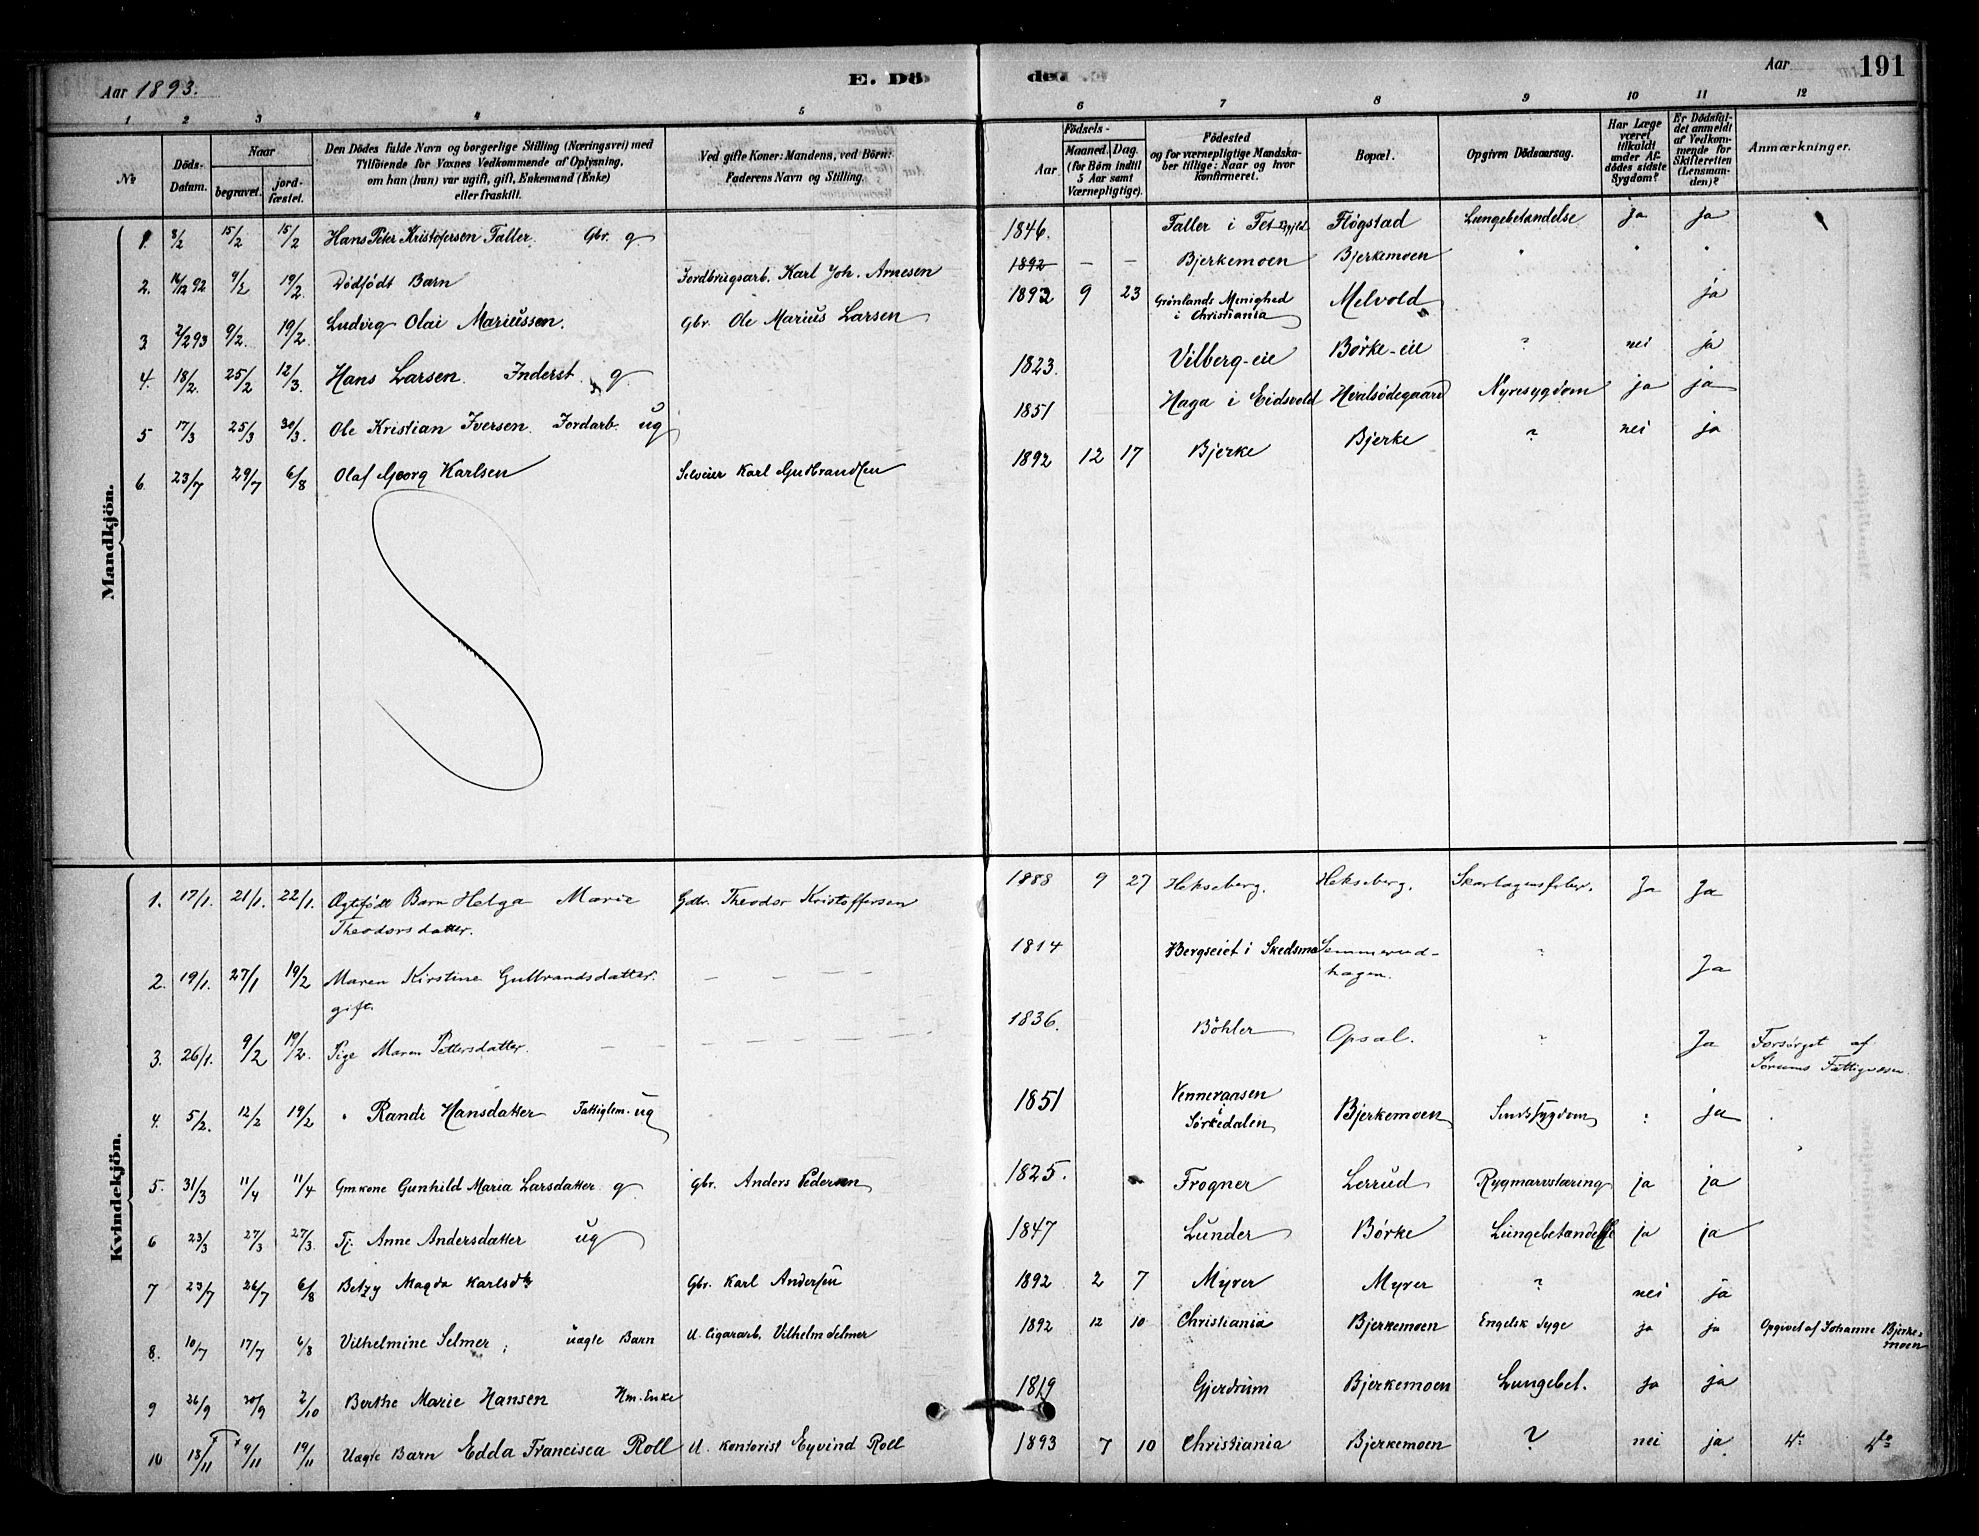 Aar 1893. E. Dö- deö Aar 191
1 2 3 4 5 6 7 8 9 10 11 12
No
Döds-Datum.
Naar
begravet.
jordfæstet.
Den Dödes fulde Navn og borgerlige Stilling (Næringsvei) med
Tilföiende for Voxnes Vedkommende af Oplysning,
om han (hun) var ugift, gift, Enkemand (Enke)
eller fraskilt.
Ved gifte Koner: Mandens, ved Börn:
Faderens Navn og Stilling.
Födsels-
Aar
Maaned. Dag.
(for Börn indtil
5 Aar samt
Værnepligtige).
Födested
og for værnepligtige Mandska-
ber tillige: Naar og hvor
konfirmeret.
Bopæl.
Opgiven Dödsaarsag.
Har Læge
været
tilkaldt
under Af-
dödes sidste
Sygdom?
Er Dödsfal-
det anmeldt
af Vedkom-
mende for
Skifteretten
(Lensman-
den)?
Anmærkninger.
Mandkjön.
1. 8/2 15/2 15/2 Hans Peter Kristofersen Faller. Gbr. g 1846. Faller i Fet Fløgstad Lungebetandelse ja ja
2. 14/12 92 9/2 19/2 Dödfödt Barn Jordbrugsarb. Karl Joh. Arnesen 1892 — — Bjerkemoen Bjerkemoen " " "
3 2/2 93 9/2. 19/2. Ludvig Olai Mariussen. Gbr. Ole Marius Larsen 1892 9 23 Grønlands Menighed i Christiania Melvold ja
4. 18/2. 25/2 12/3. Hans Larsen. Inderst. g. 1823. Vilberg-eie Børke-eie ? nei ja
5 17/3 25/3 30/3. Ole Kristian Iversen. Jordarb. ug 1851 Haga i Eidsvold Hvalsödegaard Nyresygdom ja ja
6. 23/7 29/7 6/8 Olaf Georg Karlsen Selveier Karl Gudbrandsen 1892 12 17 Bjerke Bjerke ? nei ja
Kvindekjön.
1. 17/1. 21/1. 22/1. Ægtefödt Barn Helga Marie Gdbr. Theodor Kristoffersen 1888 9 27 Hekseberg. Hekseberg. Skarlagensfeber. Ja Ja
Theodorsdatter.
2. 19/1. 27/1 19/2 Maren Kirstine Gulbrandsdatter. — — — — 1814 Bergseiet i Skedsmo Semmerud- ? Ja
gift. hagen.
3. 26/1. 9/2 19/2. Pige Maren Pettersdatter. — — — — 1836. Böhler Opsal. ? Ja Forsørget af
Sørums Fattigvæsen.
4. 5/2. 12/2 19/2 " Rande Hansdatter Fattiglem. ug 1851 Sörkedalen Bjerkemoen Sindssygdom : ja
5. 31/3 11/4 11/4 Gmkone Gunhild Maria Larsdatter g. Gbr. Anders Pedersen 1825. Frogner Lerrud Rygmarvstæring ja ja
6 23/3 27/3 27/3 Tj. Anne Andersdatter ug 1847 Lunder Børke Lungebetandelse ja ja
7 23/7 26/7 6/8 Betzy Magda Karlsdtr Gbr. Karl Andersen 1892 2 7 Myrer Myrer ? nei ja
8. 10/7 17/7 6/8 Vilhelmine Selmer; uægte Barn U. Cigararb. Vilhelm Selmer 1892 12 10 Christiania Bjerkemoen Engelsk Syge ja ja Opgivet af Johanne Bjerke-
moen
9 26/9 30/9 2/10 Berthe Marie Hansen Hm. Enke 1819 Gjerdrum Bjerkemoen Lungebet. ja ja
10 13/11 9/11 19/11 Uægte Barn Edda Francisca Roll U. kontorist Eyvind Roll 1893 7 10 Christiania Bjerkemoen ? nei ja Do Do